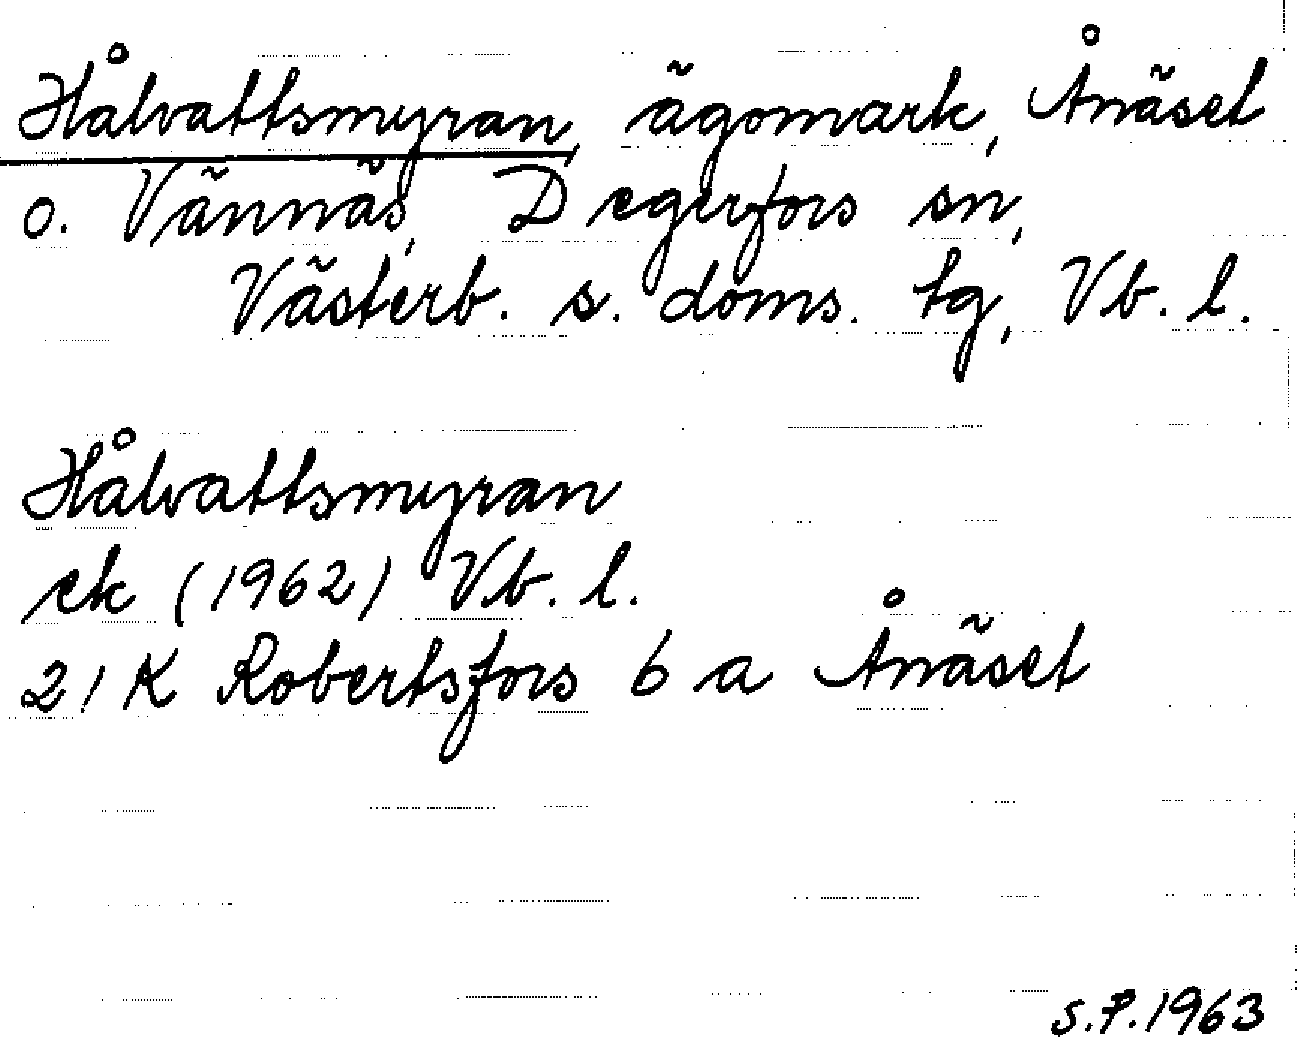 Hålvattsmyran, ägomark, Ånäset
o. Vännäs, Degerfors sn,
Västerb. s. doms. tg, Vb. l.
Hålvattsmyran
ek (1962) Vb. l.
21 K Robertsfors 6 a Ånäset
S.P. 1963